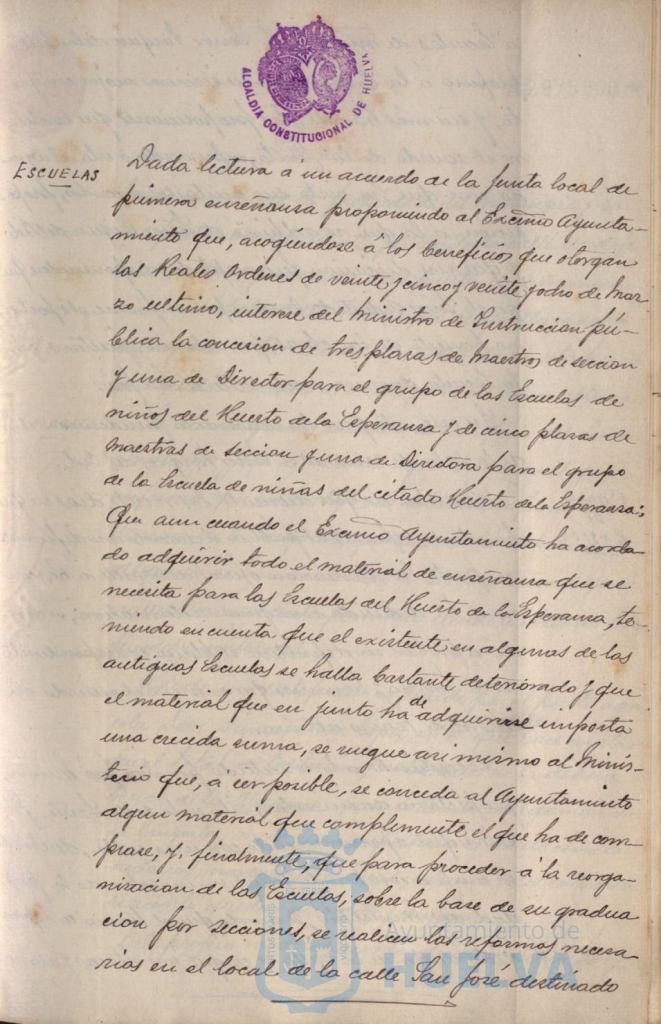 ALCALDIA CONSTITUCIONAL DE HUELVA
ESCUELAS
Dada lectura á un acuerdo de la Junta local de
primera enseñansa proponiendo al Excmo Ayunta-
miento que, acogiéndose á los beneficios que otorgan
las Reales Ordenes de veinte y cinco y veinte y ocho de Mar-
zo ultimo, interese del Ministro de Instruccion pú-
blica la concesion de tres plazas de Maestros de seccion
y una de Director para el grupo de las Escuelas de
niños del Huerto de la Esperanza y de cinco plazas de
Maestras de Seccion y una de Directora para el grupo
de la Escuela de niñas del citado Huerto de la Esperanza:
Que aun cuando el Excmo Ayuntamiento ha acorda-
do adquirir todo el material de enseñanza que se
necesita para las Escuelas del Huerto de la Esperanza, te-
niendo en cuenta que el existente en algunas de las
antiguas Escuelas se halla bastante deteriorado y que
el material que en junto ha de adquirirse importa
una crecida suma, se ruegue asi mismo al Minis-
terio que, á ser posible, se conceda al Ayuntamiento
algun material que complemente el que ha de com-
prase, y, finalmente, que para proceder á la reorga-
nizacion de las Escuelas, sobre la base de su gradua
cion por secciones, se realicen las reformas necesa-
rias en el local de la calle San José destinado
Ayuntamiento de
HUELVA